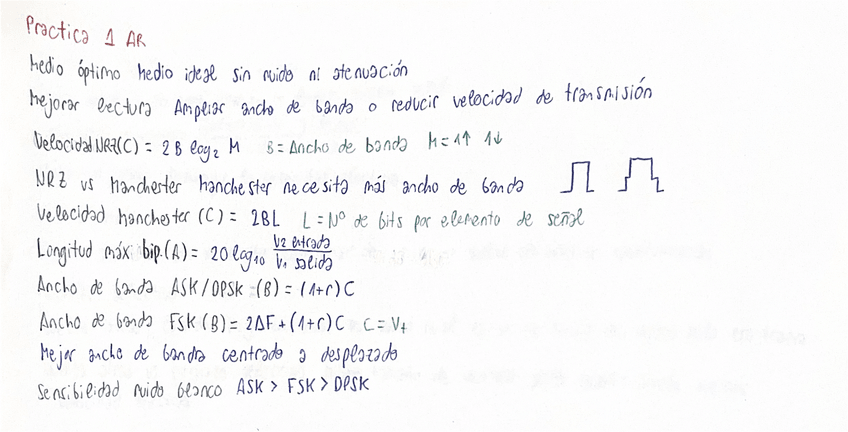 Practica 1 AR
Medio óptimo Medio ideal sin ruido ni atenuación
Mejorar lectura Ampliar ancho de banda o reducir velocidad de transmisión
Velocidad NRZ(C) = 2B log₂ M B = Ancho de banda M = 1↑ 1↓
NRZ vs Manchester Manchester necesita más ancho de banda
Velocidad Manchester (C) = 2BL L = Nº de bits por elemento de señal
Longitud máx bip.(A) = 20 log₁₀ V2 entrada / V1 salida
Ancho de banda ASK/DPSK (B) = (1+r) C
Ancho de banda FSK (B) = 2ΔF + (1+r) C C = Vt
Mejor ancho de banda centrado a desplazado
Sensibilidad ruido blanco ASK > FSK > DPSK